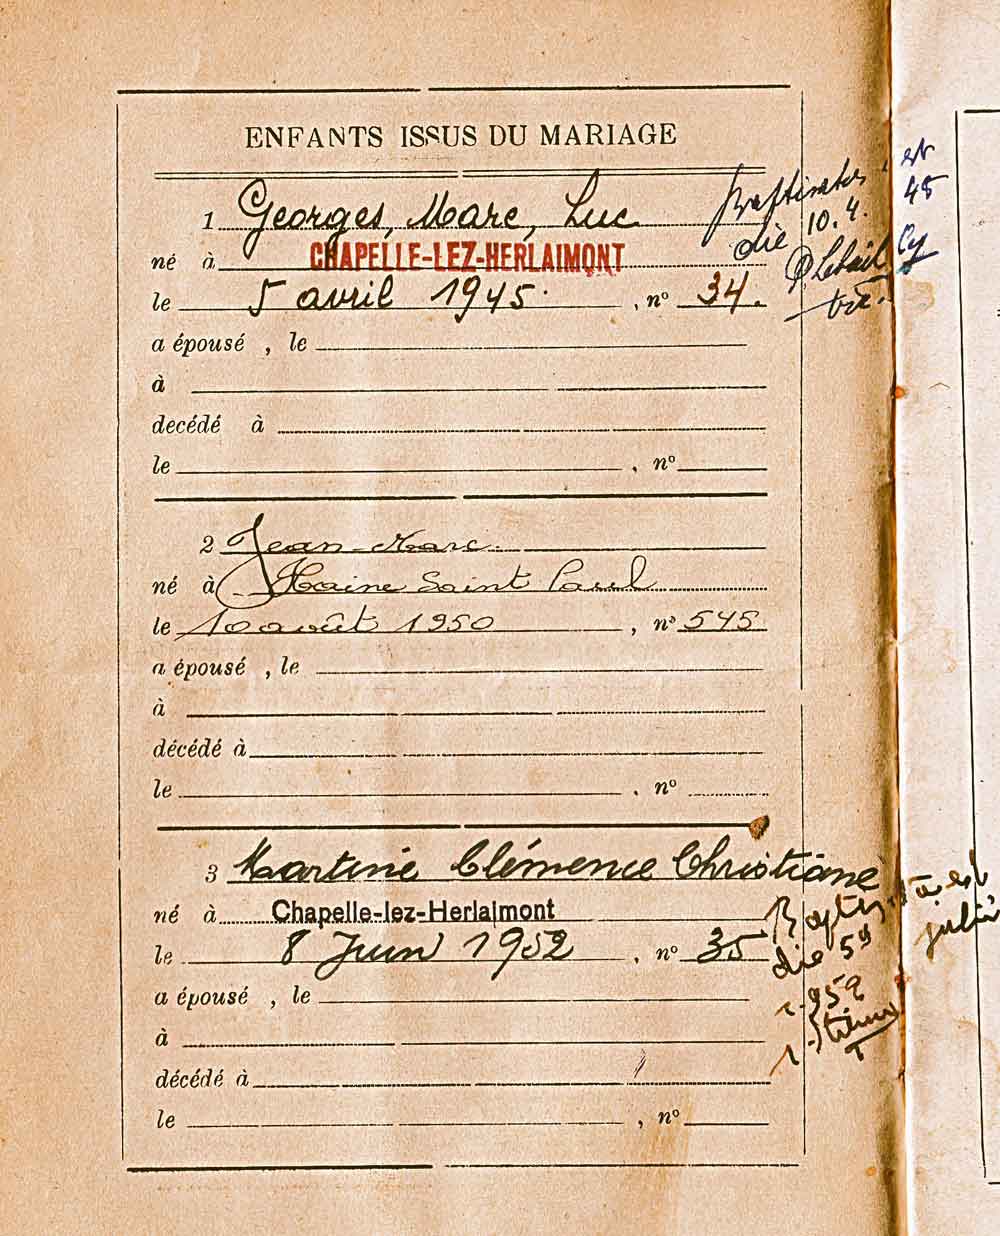 ENFANTS ISSUS DU MARIAGE
1 Georges, Marc, Luc
né à CHAPELLE-LEZ-HERLAIMONT
le 5 avril 1945. , nº 34.
Baptisatus est
die 10. 4. 45
a épousé , le
à
decédé à
le , nº
2 Jean-Marc
né à Haine Saint Paul
le 10 août 1950 , nº 545
a épousé , le
à
décédé à
le , nº
3 Martine Clémence Christiane
né à Chapelle-lez-Herlaimont
le 8 Juin 1952 , nº 35
die 5ª julii
a épousé , le
à
décédé à
le , nº